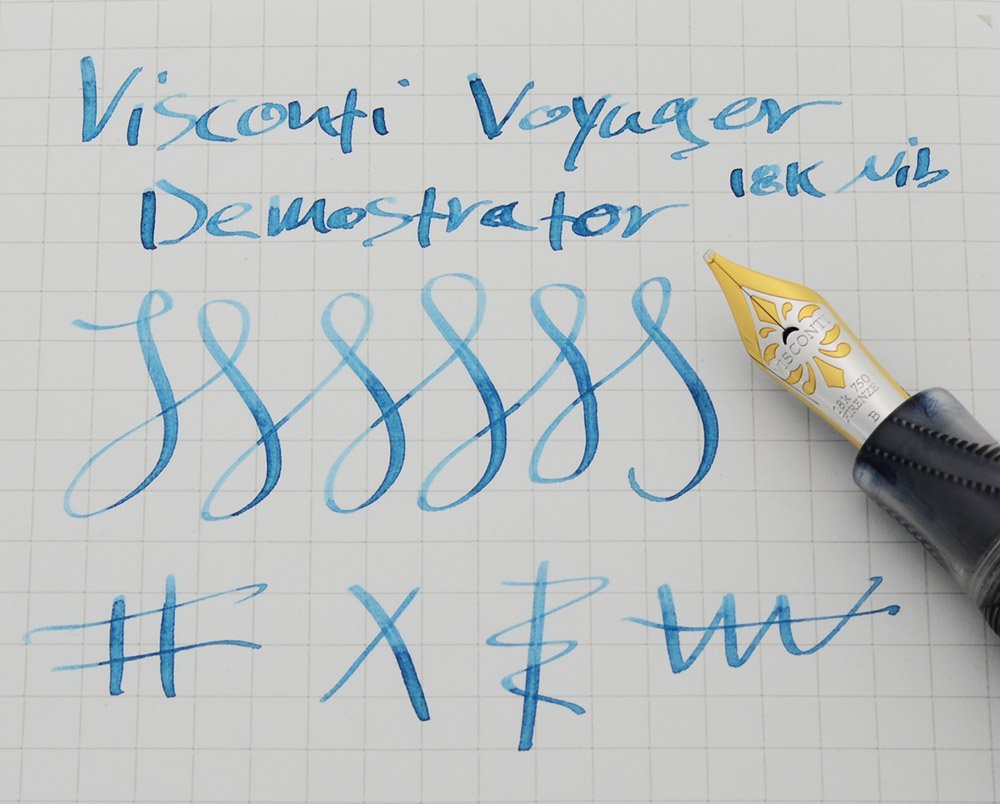 Visconti Voyager
18K Nib
Demostrator
VISCONTI
18K 750
FIRENZE
B